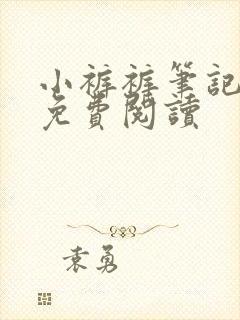 小裤裤筆記
免費閱讀
袁勇